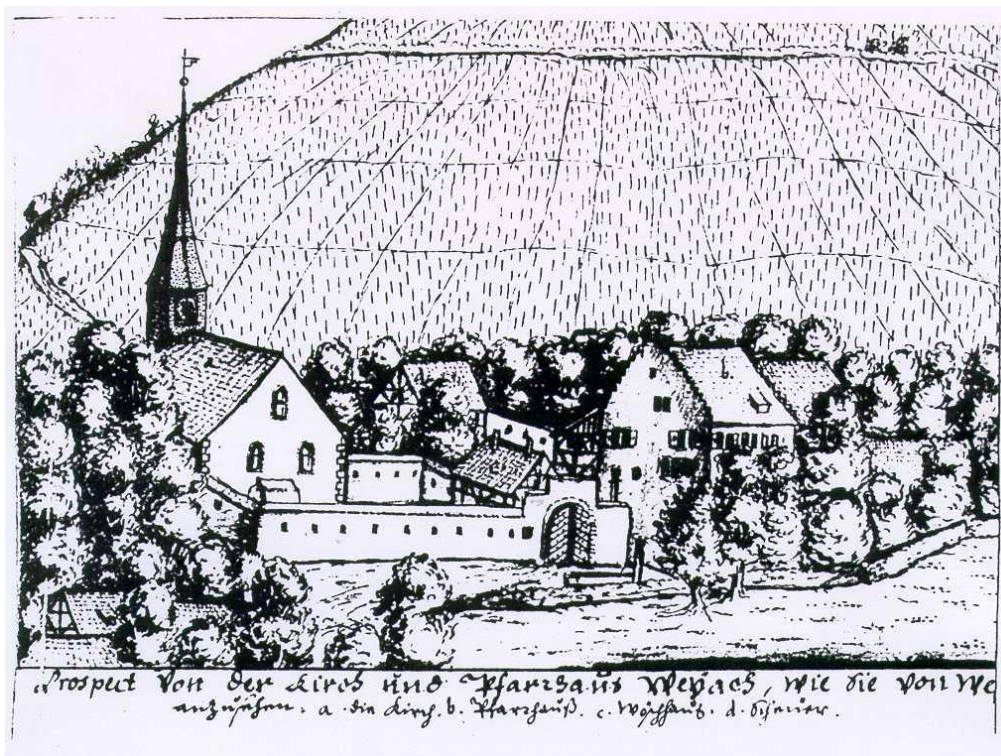 Prospect von der Kirch und Pfarrhaus Weyach, wie sie von We
anzusehen. a. die Kirch. b. Pfarrhauß. c. Wöschhauß. d. Scheuer.